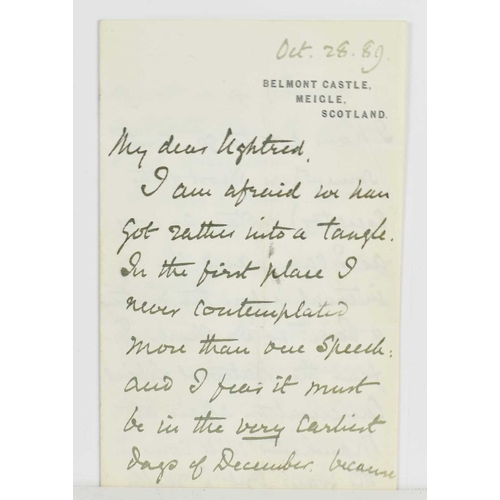 Oct. 28. 89.
BELMONT CASTLE,
MEIGLE,
SCOTLAND.
My dear Ughtred,
I am afraid we have
got rather into a tangle.
In the first place I
never contemplated
more than one Speech:
and I fear it must
be in the very earliest
days of December. because